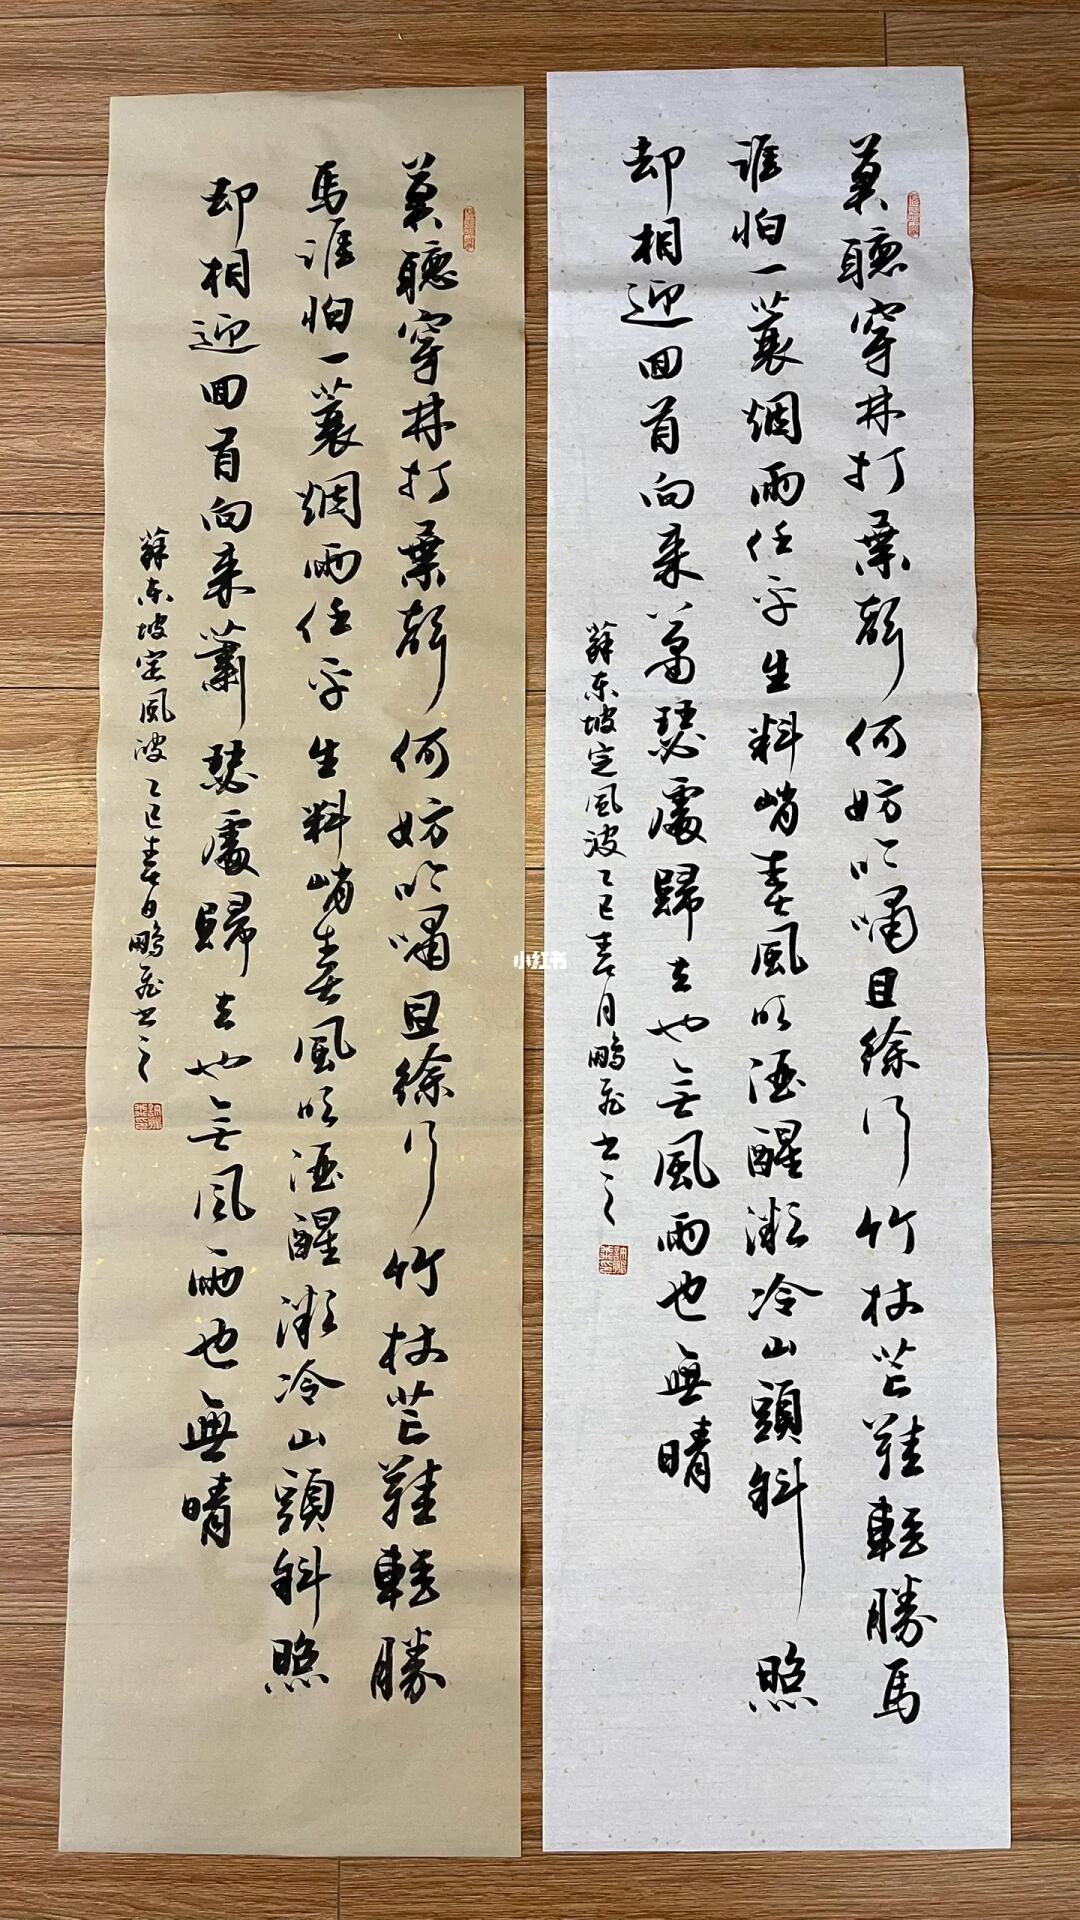 莫聽穿林打葉聲何妨吟嘯且徐行竹杖芒鞋輕勝馬
誰怕一蓑烟雨任平生料峭春風吹酒醒微冷山頭斜照
却相迎回首向来蕭瑟處歸去也無風雨也無晴
蘇東坡定风波乙巳春月鵬飛書之
莫聽穿林打葉聲何妨吟嘯且徐行竹杖芒鞋輕勝
馬誰怕一蓑烟雨任平生料峭春風吹酒醒微冷山頭斜照
却相迎回首向来蕭瑟處歸去也無风雨也無晴
蘇東坡定風波乙巳春日鵬飛書之
小红书